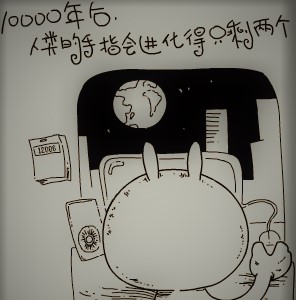 10000年后.
人类的手指会进化得只剩两个
12006